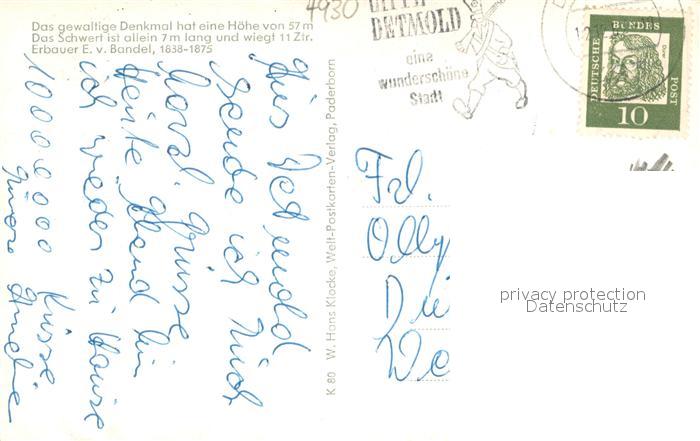 Das gewaltige Denkmal hat eine Höhe von 57 m
Das Schwert ist allein 7 m lang und wiegt 11 Ztr.
Erbauer E. v. Bandel, 1838-1875
4930
DETMOLD
eine
wunderschöne
Stadt
DEUTSCHE BUNDES POST
Dürer
10
Aus Detmold
sende ich Dir
Grüsse
heute Abend bin
ich wieder zu Hause
10000000 Küsse
K 80 W. Hans Klocke, Welt-Postkarten-Verlag, Paderborn
Frl.
Olly
privacy protection
Datenschutz